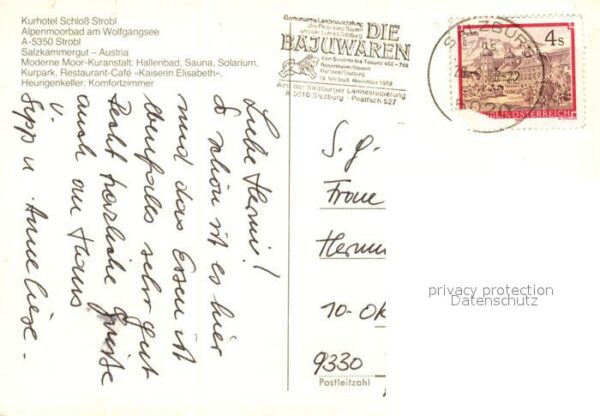 Kurhotel Schloß Strobl
Alpenmoorbad am Wolfgangsee
A-5350 Strobl
Salzkammergut – Austria
Moderne Moor-Kuranstalt; Hallenbad, Sauna, Solarium,
Kurpark, Restaurant-Café »Kaiserin Elisabeth«,
Heurigenkeller; Komfortzimmer
Gemeinsame Landesausstellung
des Freistaates Bayern
und des Landes Salzburg
DIE
BAJUWAREN
Von Severin bis Tassilo 488 - 788
Rosenheim/Bayern
Mattsee/Salzburg
19. Mai bis 6. November 1988
Amt der Salzburger Landesregierung
A 5010 Salzburg - Postfach 527
SALZBURG
5020
4s
REPUBLIK ÖSTERREICH
Liebe Hermi!
So schön ist es hier
und das Essen ist
ebenfalls sehr gut
Recht herzliche Grüsse
auch an Hans
v.
Sepp u Anneliese.
S. g.
Frau
Hermi
10-Ok
9330
Postleitzahl
privacy protection
Datenschutz